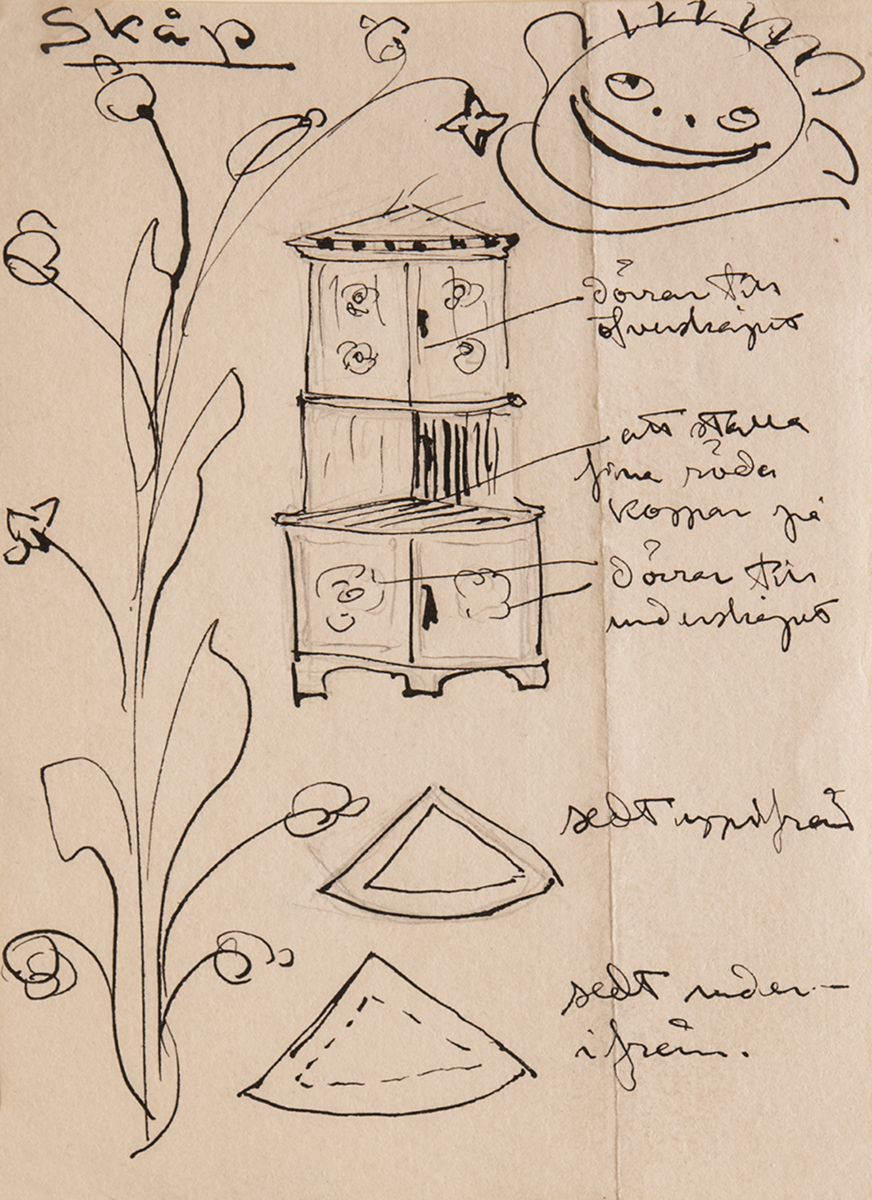 Skåp
dörrar till
öfverskåpet
att ställa
fina röda
koppar på
dörrar till
underskåpet
sedt uppifrån
sedt under-
ifrån.